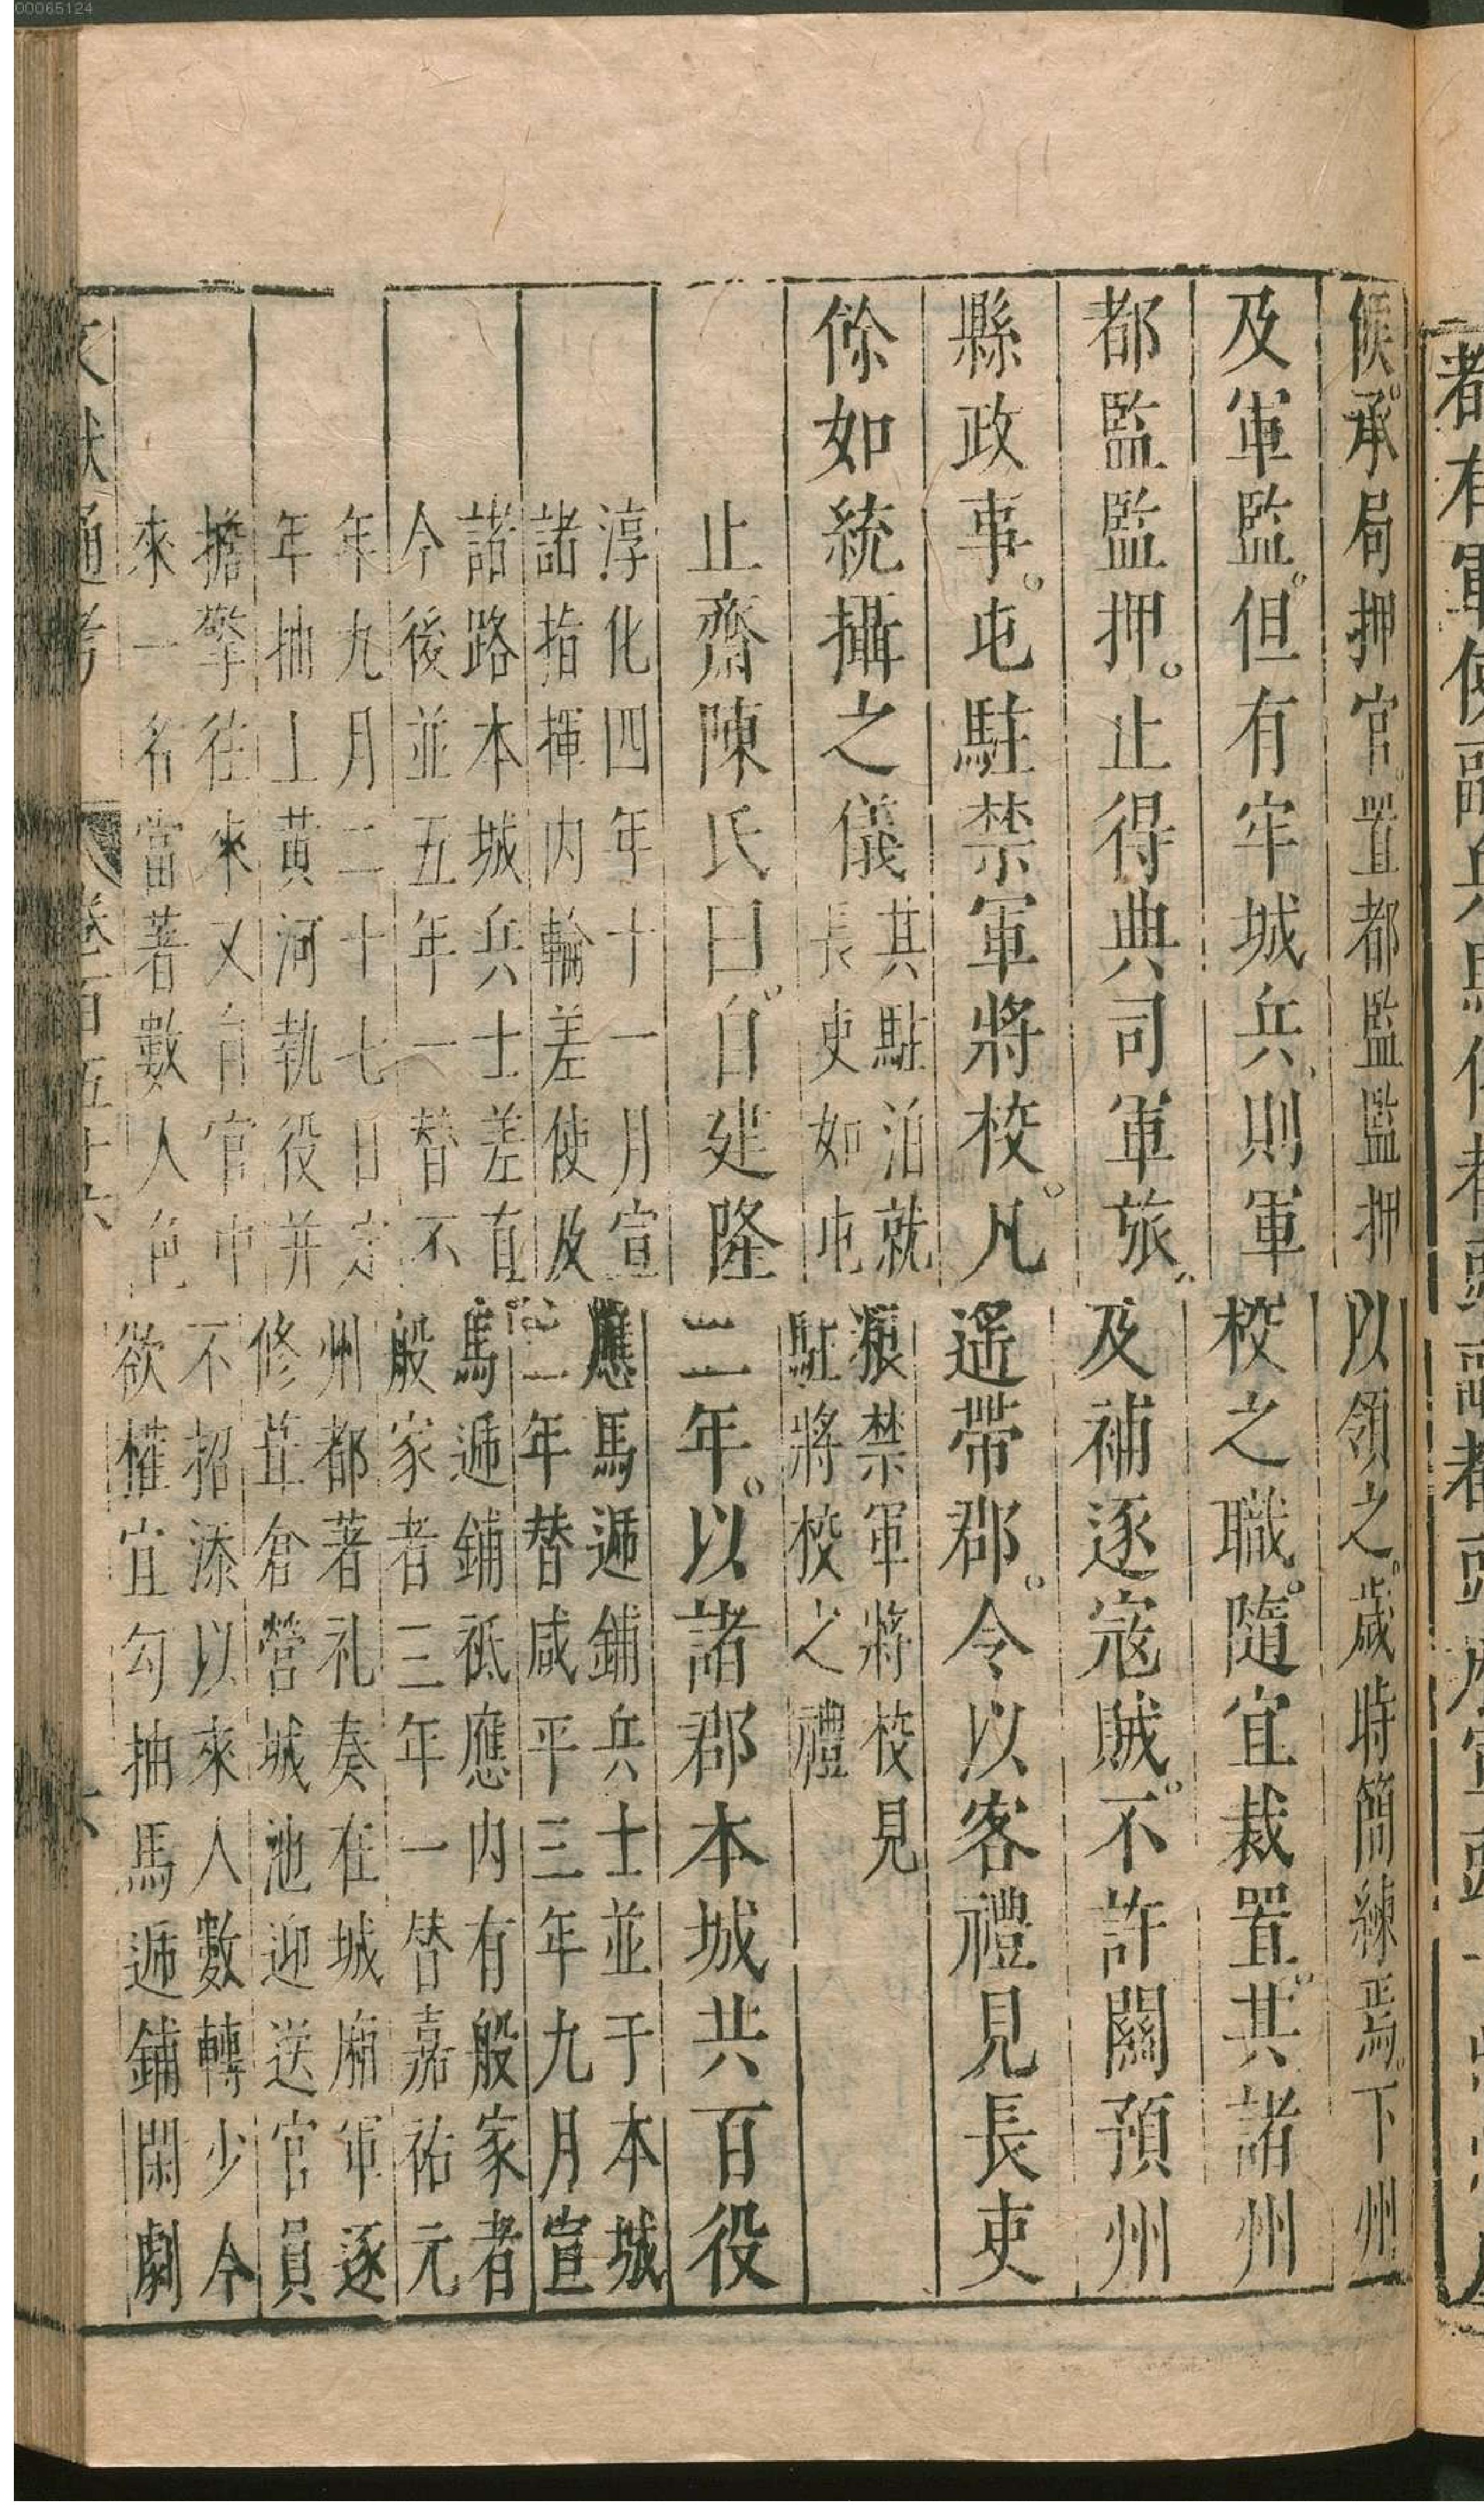 00065124
候承局押官置都監監押以領之歲時簡練焉下州
及軍監但有牢城兵則軍校之職隨宜裁置其諸州
都監監押止得典司軍旅及補逐寇賊不許關預州
縣政事屯駐禁軍將校凡遥帶郡令以客禮見長吏
餘如統攝之儀其駐泊就粮禁軍將校見
長吏如屯駐將校之禮
止齋陳氏曰自建隆二年以諸郡本城共百役
淳化四年十一月宣應馬遞鋪兵士並于本城
諸指揮內輪差使及三年替咸平三年九月宣
諸路本城兵士差直馬遞鋪祗應內有般家者
今後並五年一替不般家者三年一替嘉祐元
年九月二十七日定州都著礼奏在城廂軍逐
年抽上黃河執役并修葺倉營城池迎送官員
擔擎往來又有官中不招添以來人數轉少今
來一名當著數人色欲權宜勾抽馬遞鋪閑劇
文獻通考 卷一百五十六 六